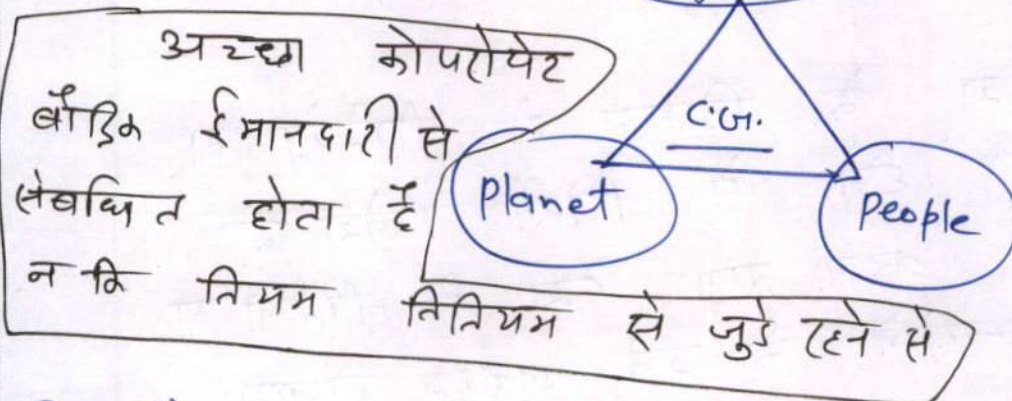 अच्छा कोपरोपेट
बौद्धिक ईमानदारी से
संबधित होता है
न कि नियम विनियम से जुडे रहने से
C.G.
Planet
People